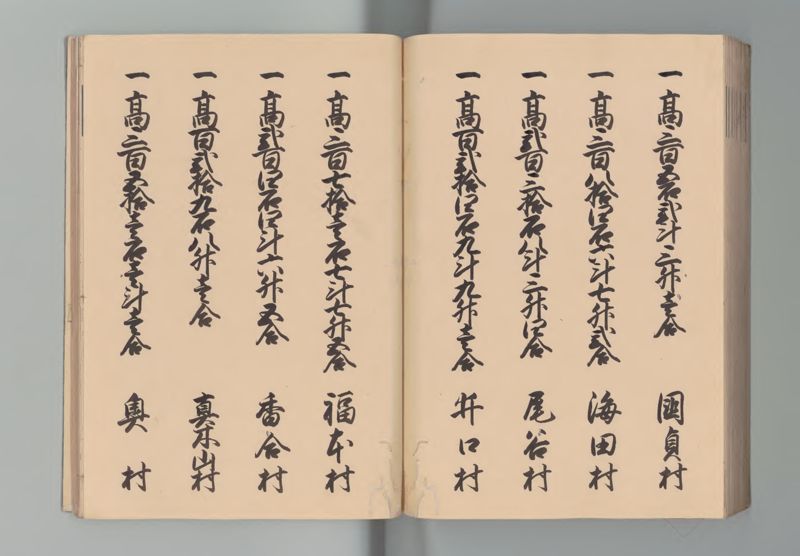 一高三百五石弐斗三升壱合 國貞村
一高三百八拾四石六斗七升弐合 海田村
一高弐百三拾石八斗三升四合 尾谷村
一高百弐拾四石九斗九升壱合 井口村
一高三百七拾壱石七斗七升五合 福本村
一高弐百四石四斗六升五合 香合村
一高百弐拾九石八升壱合 真木山村
一高三百五拾壱石壱斗壱合 奥村